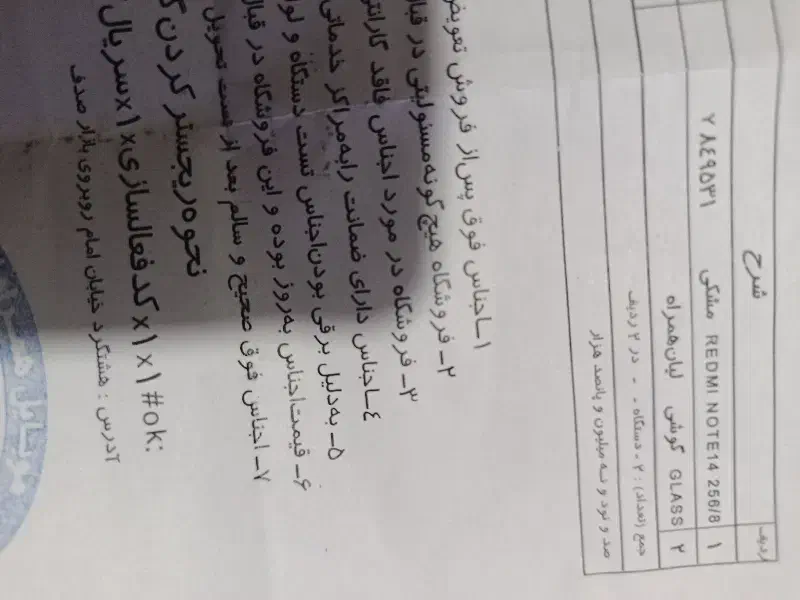 ردیف شرح
۱ REDMI NOTE14 256/8 مشکی ۷۸۴۹۵۳۱
۲ GLASS گوشی لیان همراه
جمع (تعداد) : ۲ - دستگاه - - در ۲ ردیف
صد و نود و نه میلیون و پانصد هزار
۱-اجناس فوق پس از فروش تعویض
۲- فروشگاه هیچ گونه مسئولیتی در قبا
۳- فروشگاه در مورد اجناس فاقد گارانتی
٤-اجناس دارای ضمانت رابه مراکز خدماتی
۵- به دلیل برقی بودن اجناس تست دستگاه و لوا
۶- قیمت اجناس به روز بوده و این فروشگاه در قبال
۷- اجناس فوق صحیح و سالم بعد از تست تحویل
نحوه ریجستر کردن گ
سریال x۱x کدفعالسازی x۱x۱#ok:
آدرس : هشتگرد خیابان امام روبروی بازار صدف
موبایل